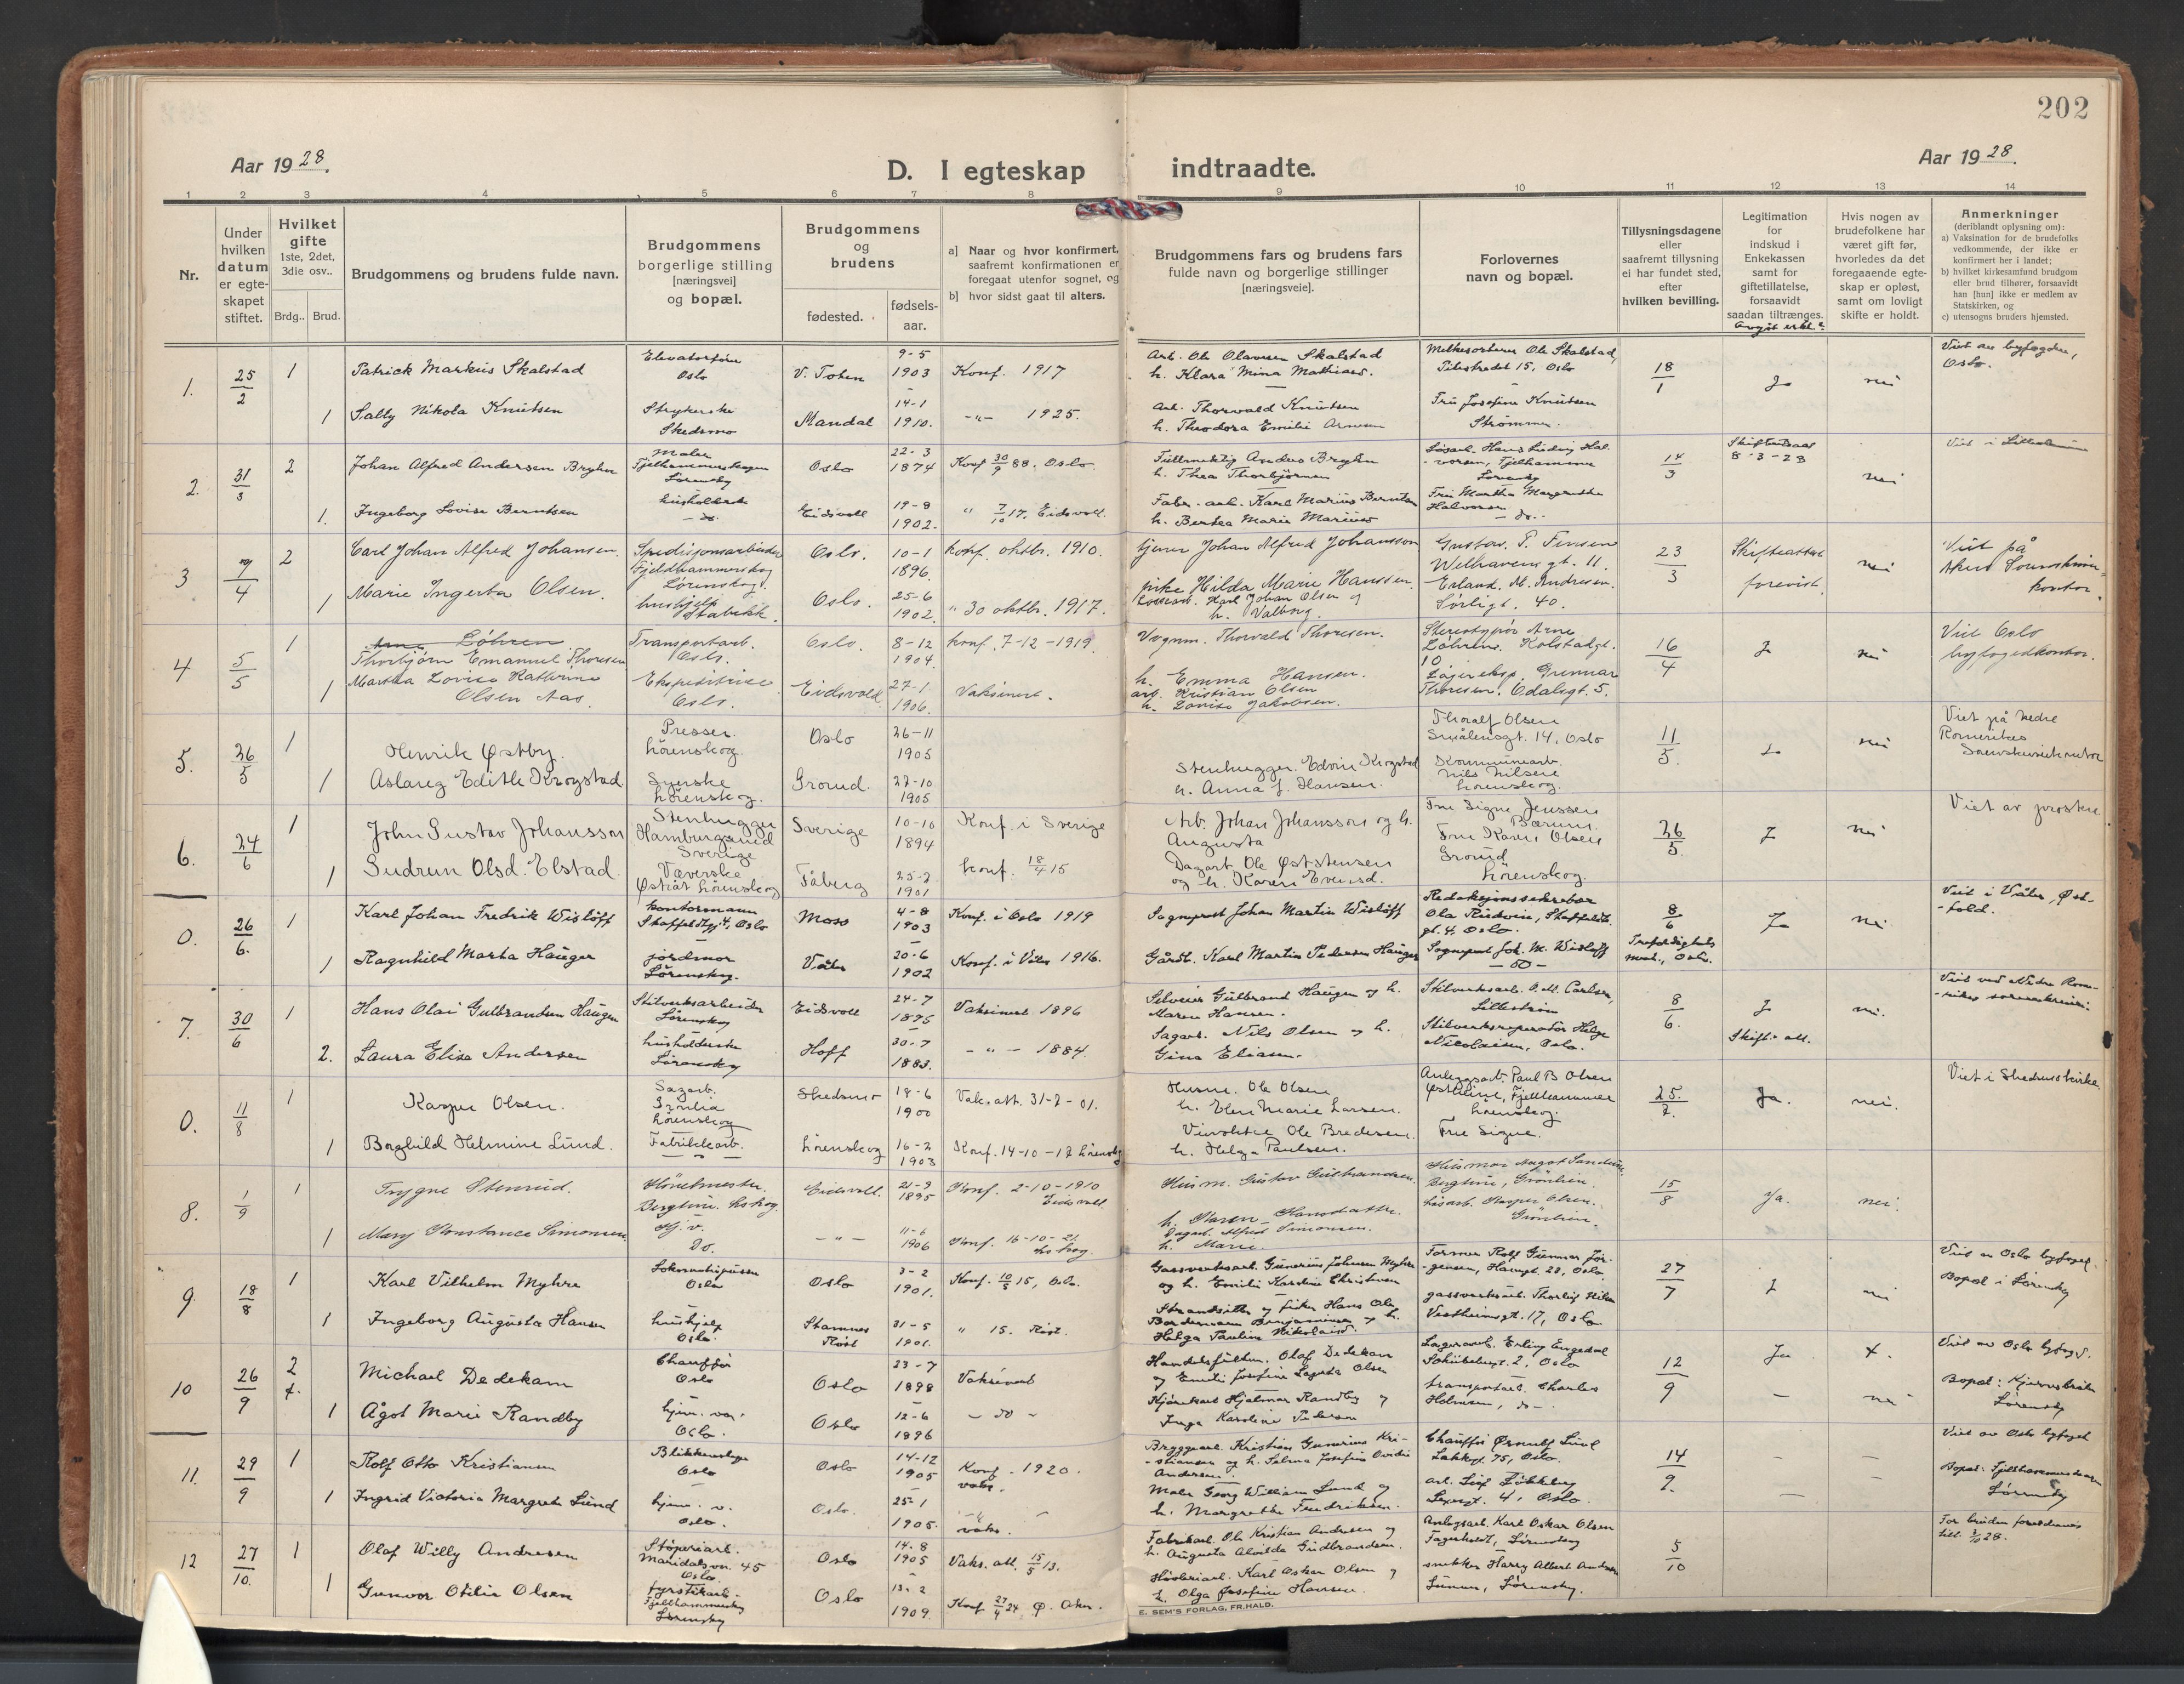 202
Aar 1928.
D. I egteskap indtraadte.
Aar 1928.
1 2 3 4 5 6 7 8 9 10 11 12 13 14
Nr.
Under hvilken datum er egte-skapet stiftet.
Hvilket gifte 1ste, 2det, 3die osv..
Brdg.. Brud.
Brudgommens og brudens fulde navn.
Brudgommens borgerlige stilling [næringsvei] og bopæl.
Brudgommens og brudens
fødested.
fødsels-aar.
a] Naar og hvor konfirmert, saafremt konfirmationen er foregaat utenfor sognet, og
b] hvor sidst gaat til alters.
Brudgommens fars og brudens fars fulde navn og borgerlige stillinger [næringsveie].
Forlovernes navn og bopæl.
Tillysningsdagene eller saafremt tillysning ei har fundet sted, efter hvilken bevilling.
Legitimation for indskud i Enkekassen samt for giftetillatelse, forsaavidt saadan tiltrænges.
Hvis nogen av brudefolkene har været gift før, hvorledes da det foregaaende egte-skap er opløst, samt om lovligt skifte er holdt.
Anmerkninger (deriblandt oplysning om):
a) Vaksination for de brudefolks vedkommende, der ikke er konfirmert her i landet;
b) hvilket kirkesamfund brudgom eller brud tilhører, forsaavidt han [hun] ikke er medlem av Statskirken, og
c) utensogns bruders hjemsted.
1. 25/2 1 Patrick Markus Skalstad Elevatorfører Oslo V. Toten 9-5 1903 Konf. 1917 Arb. Ole Olavesen Skalstad h. Klara Mina Mathiasd. Melkesorterer Ole Skalstad, Pilestredet 15, Oslo 18/1 Ja nei Viet av byfogden, Oslo.
1 Sally Nikola Knutsen Strykerske Skedsmo Mandal 14-1 1910. -"- 1925. Arb. Thorvald Knutsen h. Theodora Emilie Arnesen Fru Josefine Knutsen Strømmen.
2. 31/3 2 Johan Alfred Andersen Bryhn Maler Fjelhammerskogen Lørenskog Oslo 22-3 1874 Konf 30/9 88. Oslo. Fullmektig Andreas Bryhn h. Thea Thorbjørnsen Løsarb. Hans Ludvig Hal-vorsen, Fjelhammer Lørenskog 14/3 Skifteattest 8-3-28 nei Viet i Lillestrøm
1. Ingeborg Lovise Berntsen husholderske - do. Eidsvoll 19-8 1902. " 7/10 17. Eidsvoll. Fabr. arb. Karl Marius Berntsen h. Bertea Marie Fru Martha Margrethe Halvorsen - do -.
3 7/4 2 Carl Johan Alfred Johansen. Spedisjonsarbeider Fjeldhammerskog Lørenskog. Oslo. 10-1 1896. konf. oktbr. 1910. tjener Johan Alfred Johansson pike Hilda Marie Hanssen. Gustav. P. Welhavensgt. 11. 23/3 Skifteattest forevist. nei Viet på
1 Marie Ingerta Olsen. hushjelp Stabekk. Oslo. 25-6 1902. " 30 oktbr. 1917. Karl Johan Olsen og h. Valborg. Erland. M. Andresen. Sørligt. 40.
4 5/5 1 Løhren Thorbjørn Emanuel Thoresen Transportarb. Oslo. Oslo. 8-12 1904. konf. 7-12-1919. Vognm. Thorvald Thoresen. h. Emma Hansen. Stereotypør Arne Løhrens. Kolstadgt. 10 16/4 J nei Viet Oslo byfogedkontor.
1 Martha Lovise Katherine Olsen Aas. Ekspeditrice Oslo. Eidsvold. 27-1 1906. Vaksinert. arb. Kristian Olsen h. Lovise Jakobsen. Lagereksp. Gunnar Thoresen. Odalsgt. 5.
5. 26/5 1 Henrik Østby. Presser. Lørenskog. Oslo 26-11 1905 Thoralf Olsen Smålensgt. 14, Oslo 11/5. J. nei Viet på Nedre Romerikes Sorenskriverkontor
1 Aslaug Edith Krogstad Syerske Lørenskog. Grorud. 27-10 1905 Stenhugger. Edvin Krogstad h. Anna J. Hansen. Kommunearb. Nils Nilsen Lørenskog.
6. 24/6 1 John Gustav Johansson Stenhugger Hamburgsund Sverige Sverige 10-10 1894 Konf. i Sverige Arb. Johan Johansson og h. Augusta Fru Signe Jenssen Bærum. 26/5. J nei Viet av prosten
1 Gudrun Olsd. Elstad. Væverske Østråt Lørenskog Fåberg 25-2 1901 konf. 18/4 15 Dagarb. Ole Øststensen og h. Karen Evensd. Fru Karen Olsen Grorud Lørenskog.
0. 26/6. 1 Karl Johan Fredrik Wisløff kontormann Oslo Moss 4-8 1903 Konf. i Oslo 1919 Sogneprest Johan Martin Wisløff Redaksjonssekretær Ola Rudvin, gt. 4. Oslo. 8/6 Trefoldighets Oslo. Ja nei Viet i Våler, Øst-fold.
1 Ragnhild Marta Hauger jordmor Lørenskog. Våler 20-6 1902 Konf. i Våler 1916. Gårdb. Karl Martin Pedersen Hauger Sogneprest Joh. M. Wisløff - do -
7. 30/6 1 Hans Olai Gulbrandsen Haugen Stilverksarbeider Lørenskog Eidsvoll 24-7 1895 Vaksinert 1896 Selveier Gulbrand Haugen og h. Maren Hansen. Carlsen, Lillestrøm 8/6. J nei. Viet ved Nedre Rom-erikes sorenskriveri.
2. Laura Elise Andersen husholderske Lørenskog Hoff 30-7 1883. - " - 1884. Sagarb. Nils Olsen og h. Gina Eliasen. Stilverksreparatør Helge Nicolaisen, Oslo. Skift. att.
0. 11/8 1 Kasper Olsen. Sagarb. Grønlia Lørenskog Skedsmo 18-6 1900 Vak. att. 31-7-01. Husm. Ole Olsen h. Elen Marie Larsen. Anleggsarb. Paul B Olsen Østheim, Fjellhammer Lørenskog. 25./7. Ja. nei. Viet i Skedsmo kirke.
1 Borghild Helmine Lund. Fabrikkarb. - " - Lørenskog 16-2 1903 Konf. 14-10-17 Lørenskog Ole Bredesen. h. Helga Paulsen. Fru Signe.
8. 1/9 1 Trygve Stenrud. Bergheim. Lskog. Eidsvoll. 21-9 1895 Konf. 2-10-1910 Eidsvoll Husm. Gustav Gulbrandsen. h. Maren Hansdatter. Husmor Aagot Sandum Bergheim, Grønlien. 15/8 Ja. nei.
1 Mary Konstance Simonsen. Hj. v. Do. - " - 11-6 1906 Konf. 16-10-21 Lskog. Dagarb. Alfred Simonsen. h. Marie. Løsarb. Kasper Olsen. Grønlien.
9. 18/8 1 Karl Vilhelm Myhre Lokomotivpusser Oslo Oslo 3-2 1901. Konf. 10/5 15, Oslo. Gassverksarb. Gunerius Johansen Myhre og h. Emilie Karoline Christensen Former Rolf Gunnar Jør-gensen, Havngt. 28, Oslo. 27/7 J nei Viet av Oslo byfoged. Bopæl i Lørenskog
1 Ingeborg Augusta Hansen hushjelp Oslo. Stamnes Røst 31-5 1901. " 15. Røst. Strandsitter og fisker Hans Ole Benjaminsen og h. Helga Pauline Nikolaisd. gassverksarb. Thorleif Nilsen Vestheimsgt. 17, Oslo
10 26/9 2 Michael Dedekam Chauffør Oslo Oslo 23-7 1898 Vaksinert Olaf Dedekam og Emilie Josefine Olsen Lagerarb. Erling Engedal Schübelersgt. 2, Oslo 12/9 Ja Viet av Oslo byfogd. Bopæl: Lørenskog
1 Ågot Marie Randby hjem. vær. Oslo. Oslo 12-6 1896 - do - Kjørekarl Hjalmar Randby og Inga Karoline Pedersen transportarb. Charles Helmsen, do -. - nei
11. 29/9 1 Rolf Otto Kristiansen Blikkenslager Oslo Oslo 14-12 1905 Konf. 1920. vaks. Bryggearb. Kristian Gunerius Kri-stiansen og h. Selma Josefine Andersen. Chauffør Ørnulf Lund Lakkegt. 75, Oslo. 14/9. - - Viet av Oslo byfoged Bopæl: Lørenskog
1 Ingrid Victoria Margrete Lund hjem. v. Oslo. Oslo. 25-1 1905. - " - vaks. Maler Georg William Lund og h. Margrethe Fredriksen. arb. Leif 4, Oslo. -
12 27/10. 1 Olaf Willy Andresen Støperiarb. Maridalsvn. 45 Oslo. Oslo 14-8 1905 Vaks. att. 15/5 13. Fabrikarb. Ole Kristian Andresen og h. Augusta Alvilda Gudbrandsen. Anlegsarb. Karl Oskar Olsen Fagerholt, Lørenskog 5/10 For bruden foreldrenes till. 28.
1 Gunvor Otilie Olsen fyrstikarb. Fjellhammerskog Lørenskog Oslo 13-2 1909. Konf 27/4 24 Ø. Aker. Høvleriarb. Karl Oskar Olsen og h. Olga Josefine Hansen. snekker Harry Albert Andersen Lørenskog.
E. SEM'S FORLAG, FR.HALD.